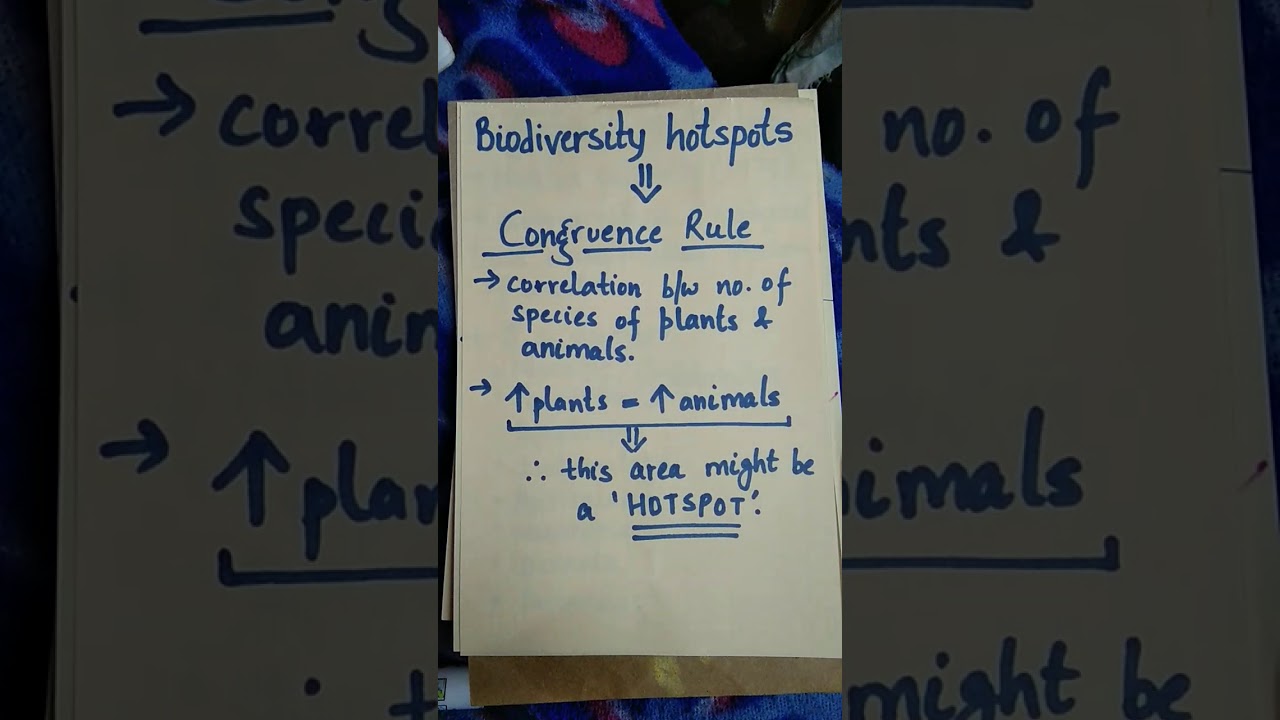 Biodiversity hotspots
⇓
Congruence Rule
→ correlation b/w no. of
species of plants &
animals.
→ ↑plants = ↑animals
⇓
∴ this area might be
a 'HOTSPOT'.